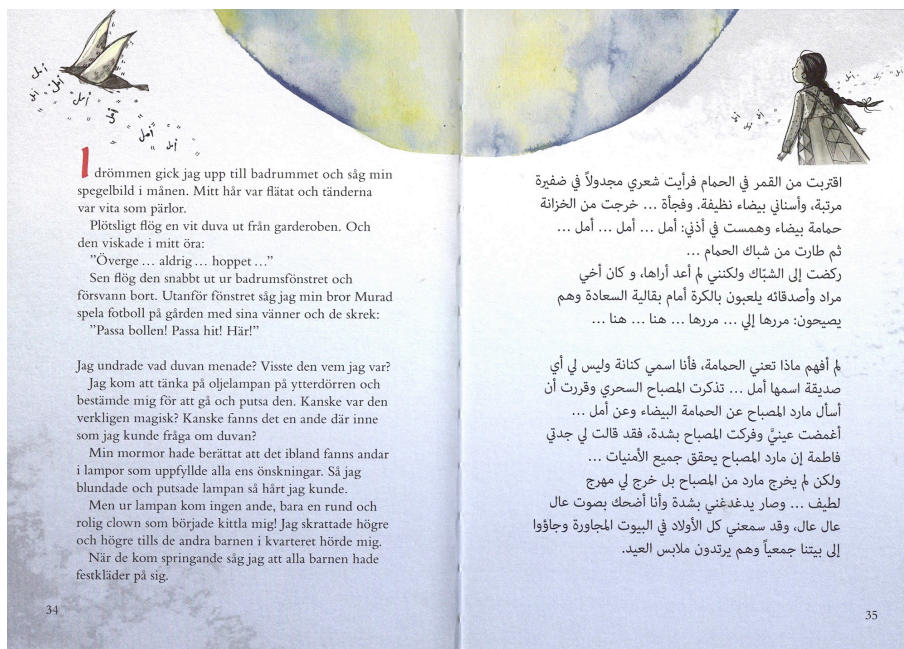 أمل
أمل
أمل
أمل
أمل
أمل
أمل
I drömmen gick jag upp till badrummet och såg min
spegelbild i månen. Mitt hår var flätat och tänderna
var vita som pärlor.
Plötsligt flög en vit duva ut från garderoben. Och
den viskade i mitt öra:
”Överge … aldrig … hoppet …”
Sen flög den snabbt ut ur badrumsfönstret och
försvann bort. Utanför fönstret såg jag min bror Murad
spela fotboll på gården med sina vänner och de skrek:
”Passa bollen! Passa hit! Här!”
Jag undrade vad duvan menade? Visste den vem jag var?
Jag kom att tänka på oljelampan på ytterdörren och
bestämde mig för att gå och putsa den. Kanske var den
verkligen magisk? Kanske fanns det en ande där inne
som jag kunde fråga om duvan?
Min mormor hade berättat att det ibland fanns andar
i lampor som uppfyllde alla ens önskningar. Så jag
blundade och putsade lampan så hårt jag kunde.
Men ur lampan kom ingen ande, bara en rund och
rolig clown som började kittla mig! Jag skrattade högre
och högre tills de andra barnen i kvarteret hörde mig.
När de kom springande såg jag att alla barnen hade
festkläder på sig.
34
أمل
اقتربت من القمر في الحمام فرأيت شعري مجدولاً في ضفيرة
مرتبة، وأسناني بيضاء نظيفة. وفجأة … خرجت من الخزانة
حمامة بيضاء وهمست في أذني: أمل … أمل … أمل …
ثم طارت من شباك الحمام …
ركضت إلى الشبّاك ولكنني لم أعد أراها، و كان أخي
مراد وأصدقائه يلعبون بالكرة أمام بقالية السعادة وهم
يصيحون: مررها إلي … مررها … هنا … هنا …
لم أفهم ماذا تعني الحمامة، فأنا اسمي كنانة وليس لي أي
صديقة اسمها أمل … تذكرت المصباح السحري وقررت أن
أسأل مارد المصباح عن الحمامة البيضاء وعن أمل …
أغمضت عينيَّ وفركت المصباح بشدة، فقد قالت لي جدتي
فاطمة إن مارد المصباح يحقق جميع الأمنيات …
ولكن لم يخرج مارد من المصباح بل خرج لي مهرج
لطيف … وصار يدغدغني بشدة وأنا أضحك بصوت عال
عال عال، وقد سمعني كل الأولاد في البيوت المجاورة وجاؤوا
إلى بيتنا جمعياً وهم يرتدون ملابس العيد.
35